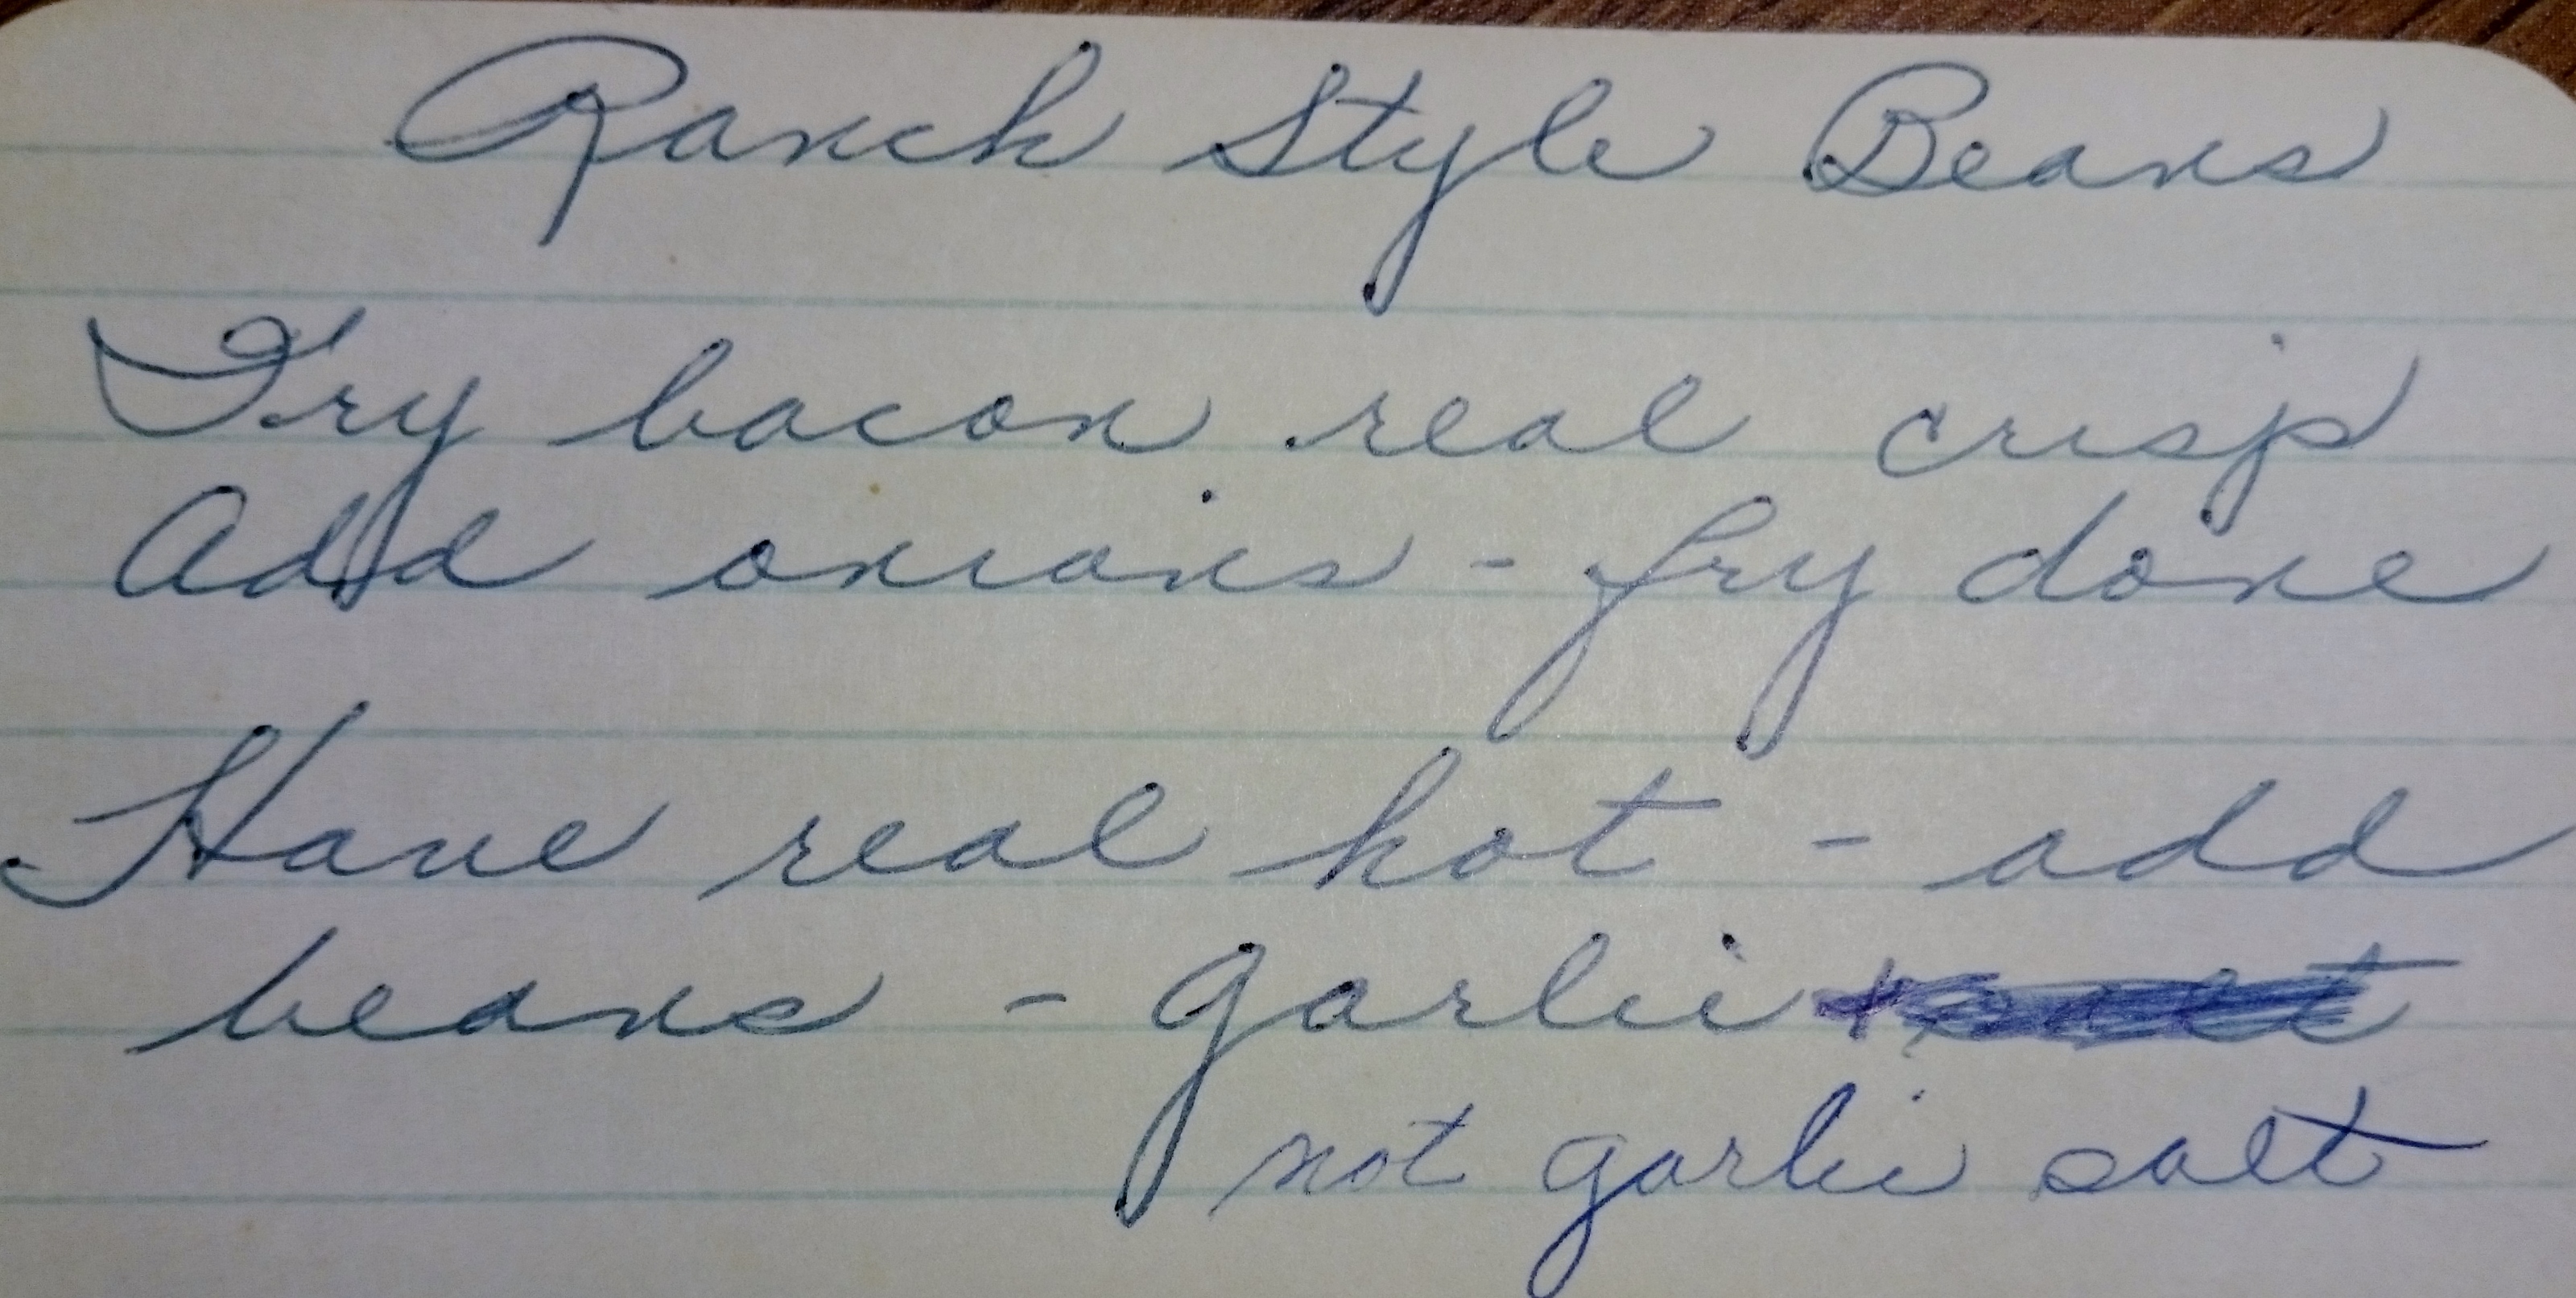 Ranch Style Beans
Fry bacon real crisp
Add onions - fry done
Have real hot - add
beans - garlic
not garlic salt